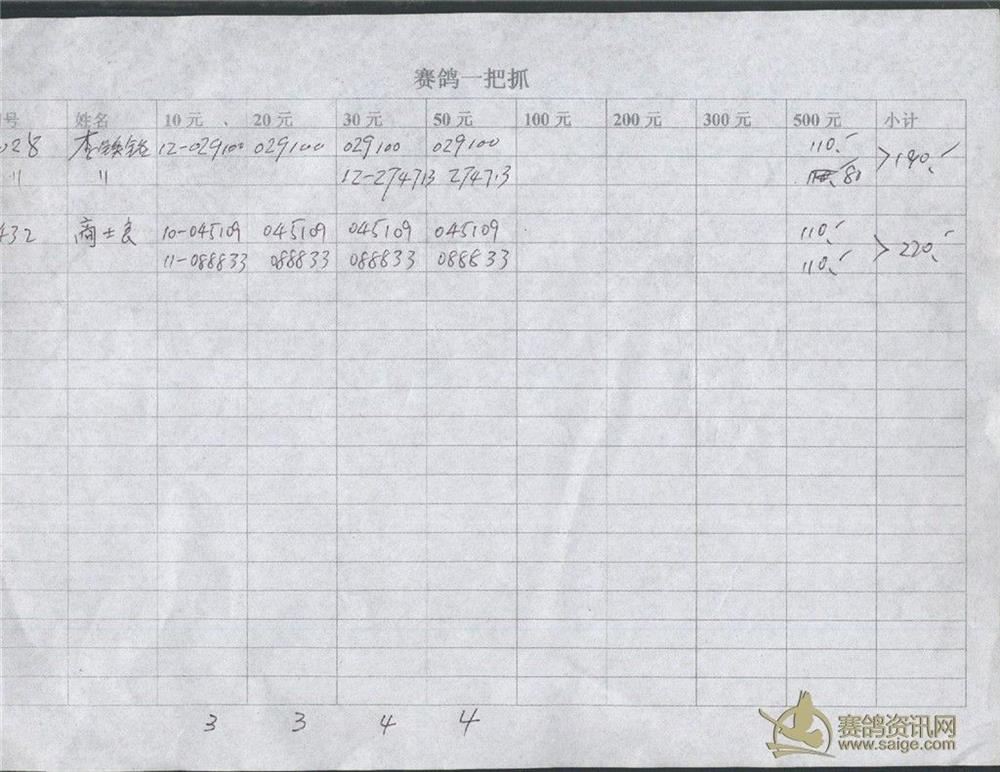 赛鸽一把抓
号 姓名 10元 、 20元 30元 50元 100元 200元 300元 500元 小计
028 李 12-029100 029100 029100 029100 110.
〃 〃 12-274713 274713 80 >190.
432 商士良 10-045109 045109 045109 045109 110.
11-088833 088833 088833 088833 110. >220.
3 3 4 4
赛鸽资讯网
www.saige.com